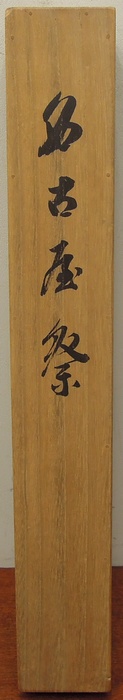 名古屋祭